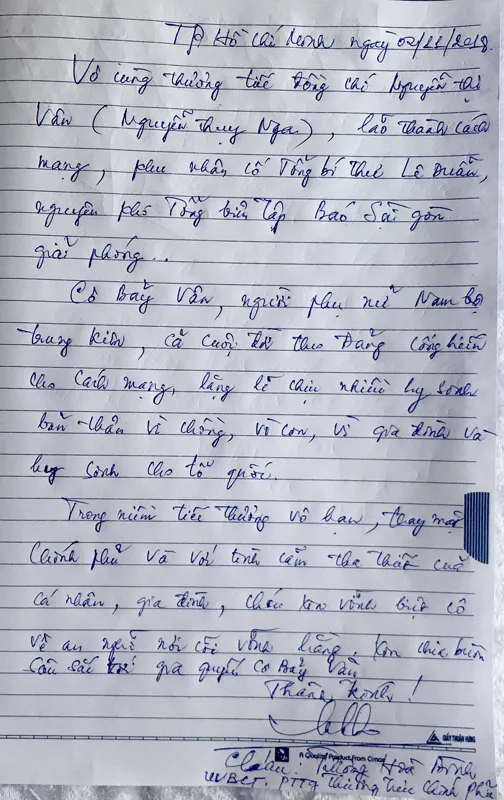 TP Hồ Chí Minh ngày 02/11/2018.
Vô cùng thương tiếc đồng chí Nguyễn thị
Vân (Nguyễn Thụy Nga), lão thành cách
mạng, phu nhân cố Tổng bí thư Lê Duẩn,
nguyên phó Tổng biên tập Báo Sài gòn
giải phóng...
Cô Bảy Vân, người phụ nữ Nam bộ
trung kiên, cả cuộc đời theo Đảng cống hiến
cho Cách mạng, lặng lẽ chịu nhiều hy sinh
bản thân vì chồng, vì con, vì gia đình và
hy sinh cho tổ quốc.
Trong niềm tiếc thương vô hạn, thay mặt
Chính phủ và với tình cảm tha thiết của
cá nhân, gia đình, cháu xin vĩnh biệt cô
về an nghỉ nơi cõi vĩnh hằng. Xin chia buồn
sâu sắc gia quyến cô Bảy Vân
Thành kính!
GIẤY THUẬN HƯNG
A Quality Product From Cimax
Cháu Trương Hoà Bình
UVBCT. PTTg Thường trực Chính Phủ